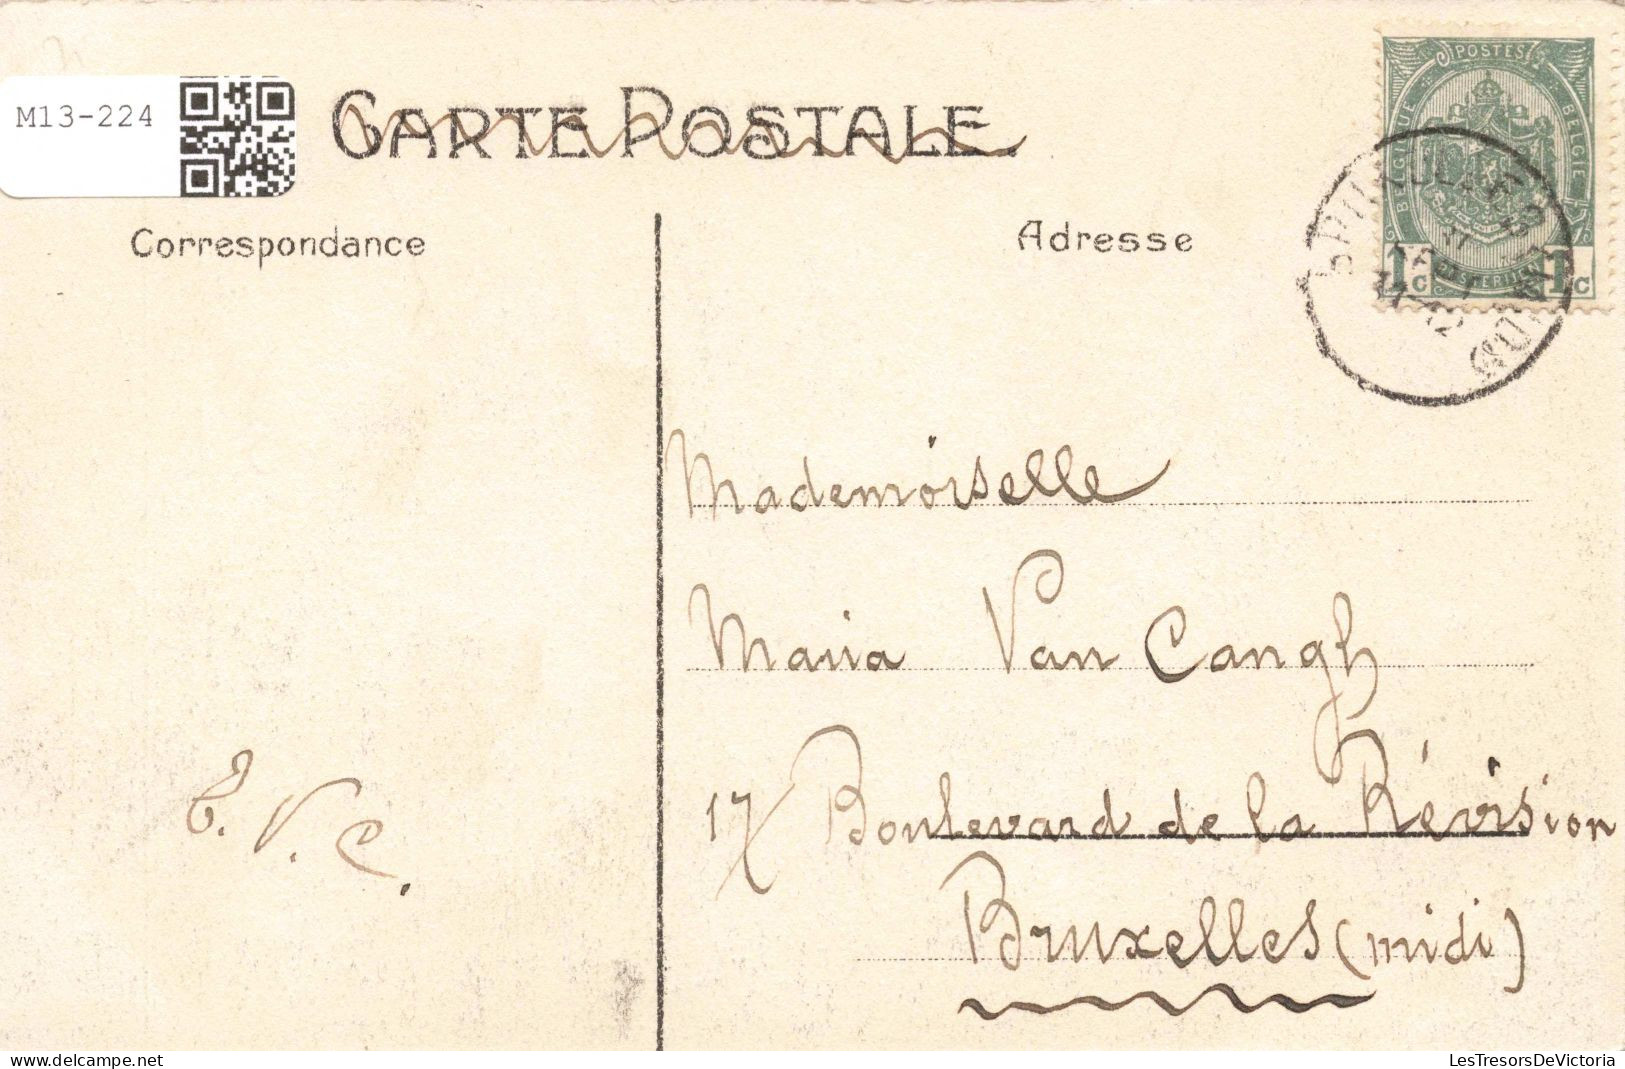 M13-224
CARTE POSTALE.
Correspondance
Adresse
POSTES
BELGIQUE
BELGIE
1c 1c
11-12
Mademoiselle
Maria Van Cangh
17 Boulevard de la Révision
Bruxelles (midi)
E. V. C.
www.delcampe.net
LesTresorsDeVictoria